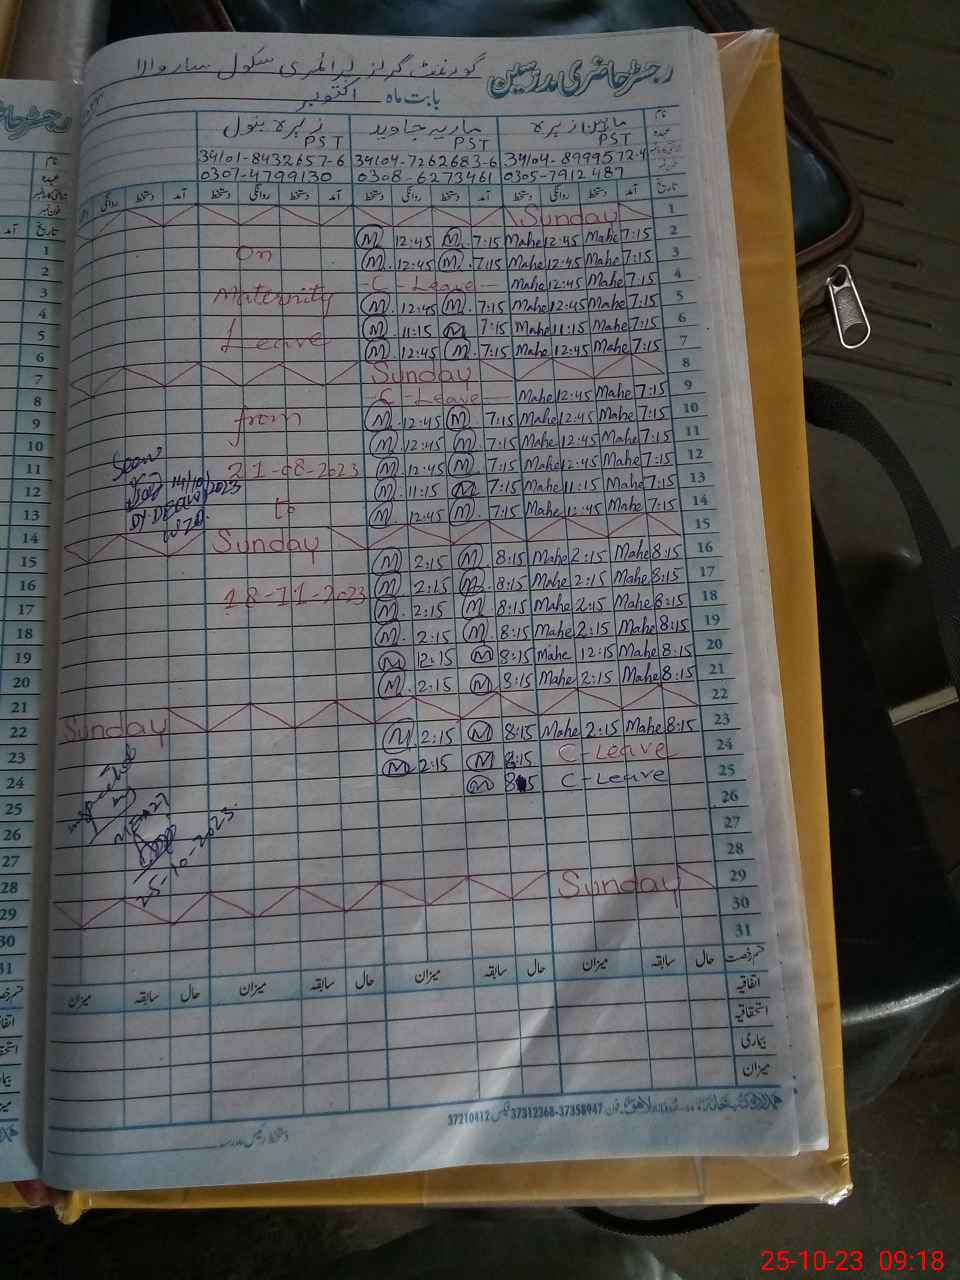 رجسٹر حاضری مدرسین گورنمنٹ گرلز پرائمری سکول سارو والا
بابت ماہ اکتوبر
نام ماہین زہرہ ماریہ جاوید زہرہ بتول
عہدہ PST PST PST
34104-8999572-4 34104-7262683-6 34101-8432657-6
0305-7912487 0308-6273461 0307-4799130
تاریخ آمد دستخط روانگی دستخط آمد دستخط روانگی دستخط آمد دستخط روانگی دستخط
1 Sunday
2 7:15 Mahe 12:45 Mahe 7:15 M. 12:45 M
3 7:15 Mahe 12:45 Mahe 7:15 M. 12:45 M. On
4 7:15 Mahe 12:45 Mahe - C - Leave -
5 7:15 Mahe 12:45 Mahe 7:15 M. 12:45 M. Maternity
6 7:15 Mahe 11:15 Mahe 7:15 M 11:15 M.
7 7:15 Mahe 12:45 Mahe 7:15 M. 12:45 M Leave
8 Sunday
9 7:15 Mahe 12:45 Mahe - C - Leave -
10 7:15 Mahe 12:45 Mahe 7:15 M. 12:45 M. from
11 7:15 Mahe 12:45 Mahe 7:15 M. 12:45 M.
12 7:15 Mahe 12:45 Mahe 7:15 M. 12:45 M. 21-08-2023
13 7:15 Mahe 11:15 Mahe 7:15 M 11:15 M.
14 7:15 Mahe 12:45 Mahe 7:15 M. 12:45 M. to
15 Sunday
16 8:15 Mahe 2:15 Mahe 8:15 M. 2:15 M
17 8:15 Mahe 2:15 Mahe 8:15 M. 2:15 M.
18 8:15 Mahe 2:15 Mahe 8:15 M 2:15 M. 18-11-2023
19 8:15 Mahe 2:15 Mahe 8:15 M. 2:15 M.
20 8:15 Mahe 12:15 Mahe 8:15 M 12:15 M
21 8:15 Mahe 2:15 Mahe 8:15 M 2:15 M.
22 Sunday
23 8:15 Mahe 2:15 Mahe 8:15 M 2:15 M.
24 C-Leave 8:15 M 2:15 M
25 C-Leave 8:15 M
26
27
28
29 Sunday
30
31
Seen
14/10/2023
Dy. DEO
25-10-2023
قسم رخصت حال سابقہ میزان حال سابقہ میزان حال سابقہ میزان
اتفاقیہ
استحقاقیہ
بیماری
میزان
37312368-37358947 فیکس 37210412
رجسٹر حاضر
نام
عہدہ
تاریخ آمد
1
2
3
4
5
6
7
8
9
10
11
12
13
14
15
16
17
18
19
20
21
22
23
24
25
26
27
28
29
30
31
25-10-23 09:18